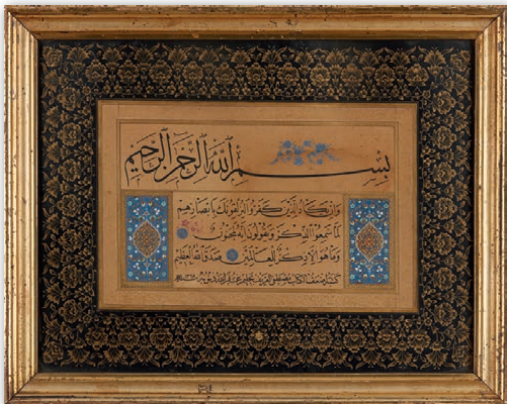 بِسْمِ اللَّهِ الرَّحْمَنِ الرَّحِيمِ
وَإِنْ يَكَادُ الَّذِينَ كَفَرُوا لَيُزْلِقُونَكَ بِأَبْصَارِهِمْ
لَمَّا سَمِعُوا الذِّكْرَ وَيَقُولُونَ إِنَّهُ لَمَجْنُونٌ
وَمَا هُوَ إِلَّا ذِكْرٌ لِلْعَالَمِينَ صَدَقَ اللَّهُ الْعَظِيمُ